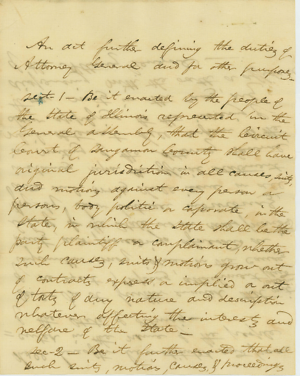 An act further defining the duties of
Attorney General and for other purposes—
Sect 1 — Be it enacted by the people of
the State of Illinois represented in the
General Assembly, that the Circuit
Court of Sangamon County shall have
original jurisdiction in all causes, suits,
and motions against every person or
persons, body politic or corporate, in the
State, in which the State shall be the
party plaintiff or complainant, whether
such causes, suits & motions grow out
of contracts express or implied or out
of torts of any nature and description
whatever affecting the interests and
welfare of the State—
Sec 2 — Be it further enacted that all
such suits, motions, causes & proceedings